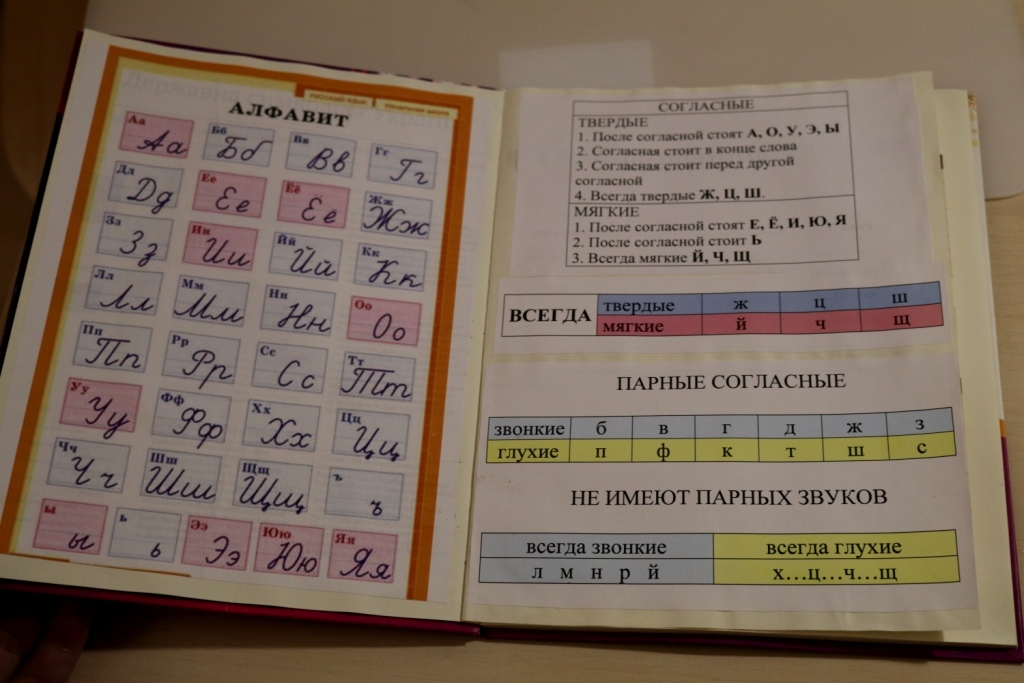 РУССКИЙ ЯЗЫК НАЧАЛЬНАЯ ШКОЛА
АЛФАВИТ
Аа Бб Вв Гг
Аа Бб Вв Гг
Дд Ее Ёё Жж
Дд Ее Ёё Жж
Зз Ии Йй Кк
Зз Ии Йй Кк
Лл Мм Нн Оо
Лл Мм Нн Оо
Пп Рр Сс Тт
Пп Рр Сс Тт
Уу Фф Хх Цц
Уу Фф Хх Цц
Чч Шш Щщ ъ
Чч Шш Щщ ъ
ы ь Ээ Юю Яя
ы ь Ээ Юю Яя
СОГЛАСНЫЕ
ТВЕРДЫЕ
1. После согласной стоят А, О, У, Э, Ы
2. Согласная стоит в конце слова
3. Согласная стоит перед другой
согласной
4. Всегда твердые Ж, Ц, Ш.
МЯГКИЕ
1. После согласной стоят Е, Ё, И, Ю, Я
2. После согласной стоит Ь
3. Всегда мягкие Й, Ч, Щ
ВСЕГДА
твердые ж ц ш
мягкие й ч щ
ПАРНЫЕ СОГЛАСНЫЕ
звонкие б в г д ж з
глухие п ф к т ш с
НЕ ИМЕЮТ ПАРНЫХ ЗВУКОВ
всегда звонкие всегда глухие
л м н р й х…ц…ч…щ